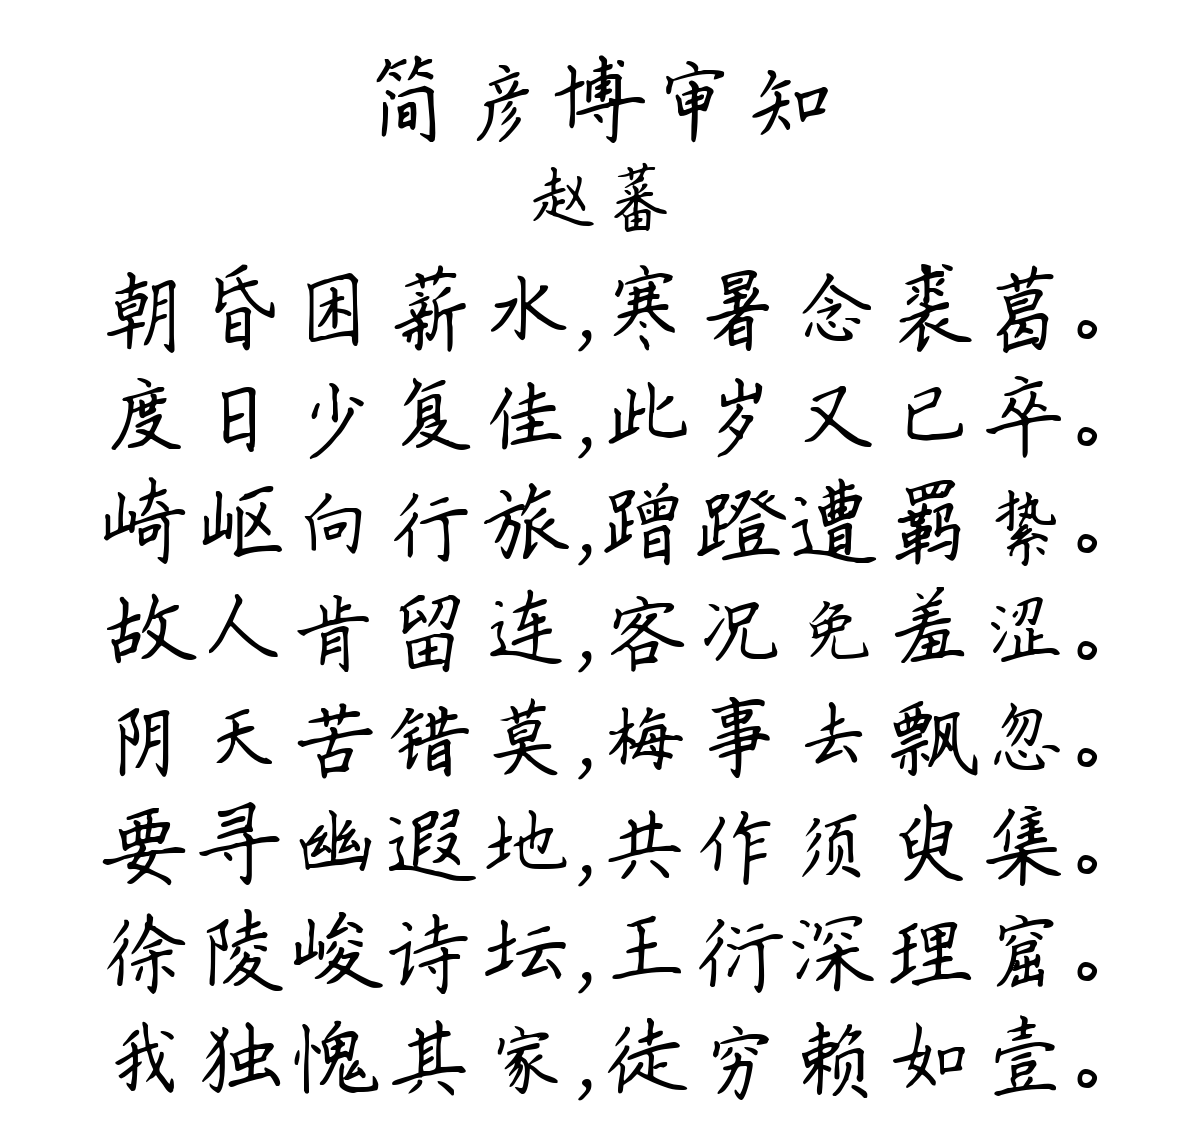 简彦博审知
赵蕃
朝昏困薪水,寒暑念裘葛。
度日少复佳,此岁又已卒。
崎岖向行旅,蹭蹬遭羁絷。
故人肯留连,客况免羞涩。
阴天苦错莫,梅事去飘忽。
要寻幽遐地,共作须臾集。
徐陵峻诗坛,王衍深理窟。
我独愧其家,徒穷赖如壹。